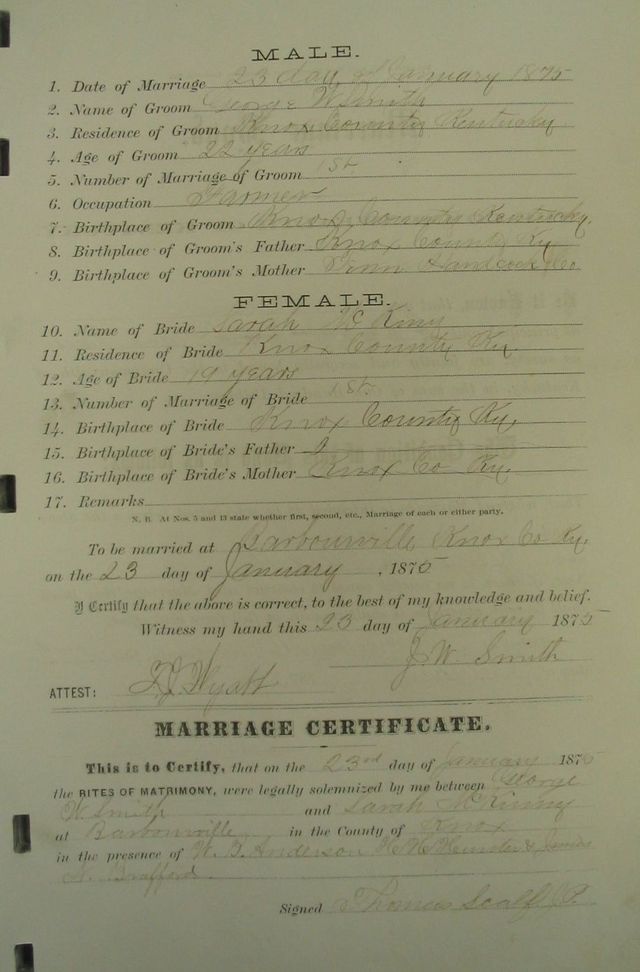 MALE.
1. Date of Marriage 23 day of January 1875
2. Name of Groom George W Smith
3. Residence of Groom Knox County Kentucky
4. Age of Groom 22 years
5. Number of Marriage of Groom 1st
6. Occupation Farmer
7. Birthplace of Groom Knox County Kentucky.
8. Birthplace of Groom's Father Knox County Ky
9. Birthplace of Groom's Mother Handcock Co
FEMALE.
10. Name of Bride Sarah McKiny
11. Residence of Bride Knox County Ky
12. Age of Bride 19 years
13. Number of Marriage of Bride 1st
14. Birthplace of Bride Knox County Ky,
15. Birthplace of Bride's Father
16. Birthplace of Bride's Mother Knox Co Ky,
17. Remarks
N. B. At Nos. 5 and 13 state whether first, second, etc., Marriage of each or either party.
To be married at Barbourville Knox Co Ky,
on the 23 day of January, 1875
I Certify that the above is correct, to the best of my knowledge and belief.
Witness my hand this 23 day of January 1875
J W Smith
ATTEST: Wyatt
MARRIAGE CERTIFICATE.
This is to Certify, that on the 23rd day of January 1875
the RITES OF MATRIMONY, were legally solemnized by me between George
W. Smith and Sarah McKinny
at Barbourville in the County of Knox
in the presence of W. G. Anderson &
N. Brafford
Signed Thomas Scalf J.P.